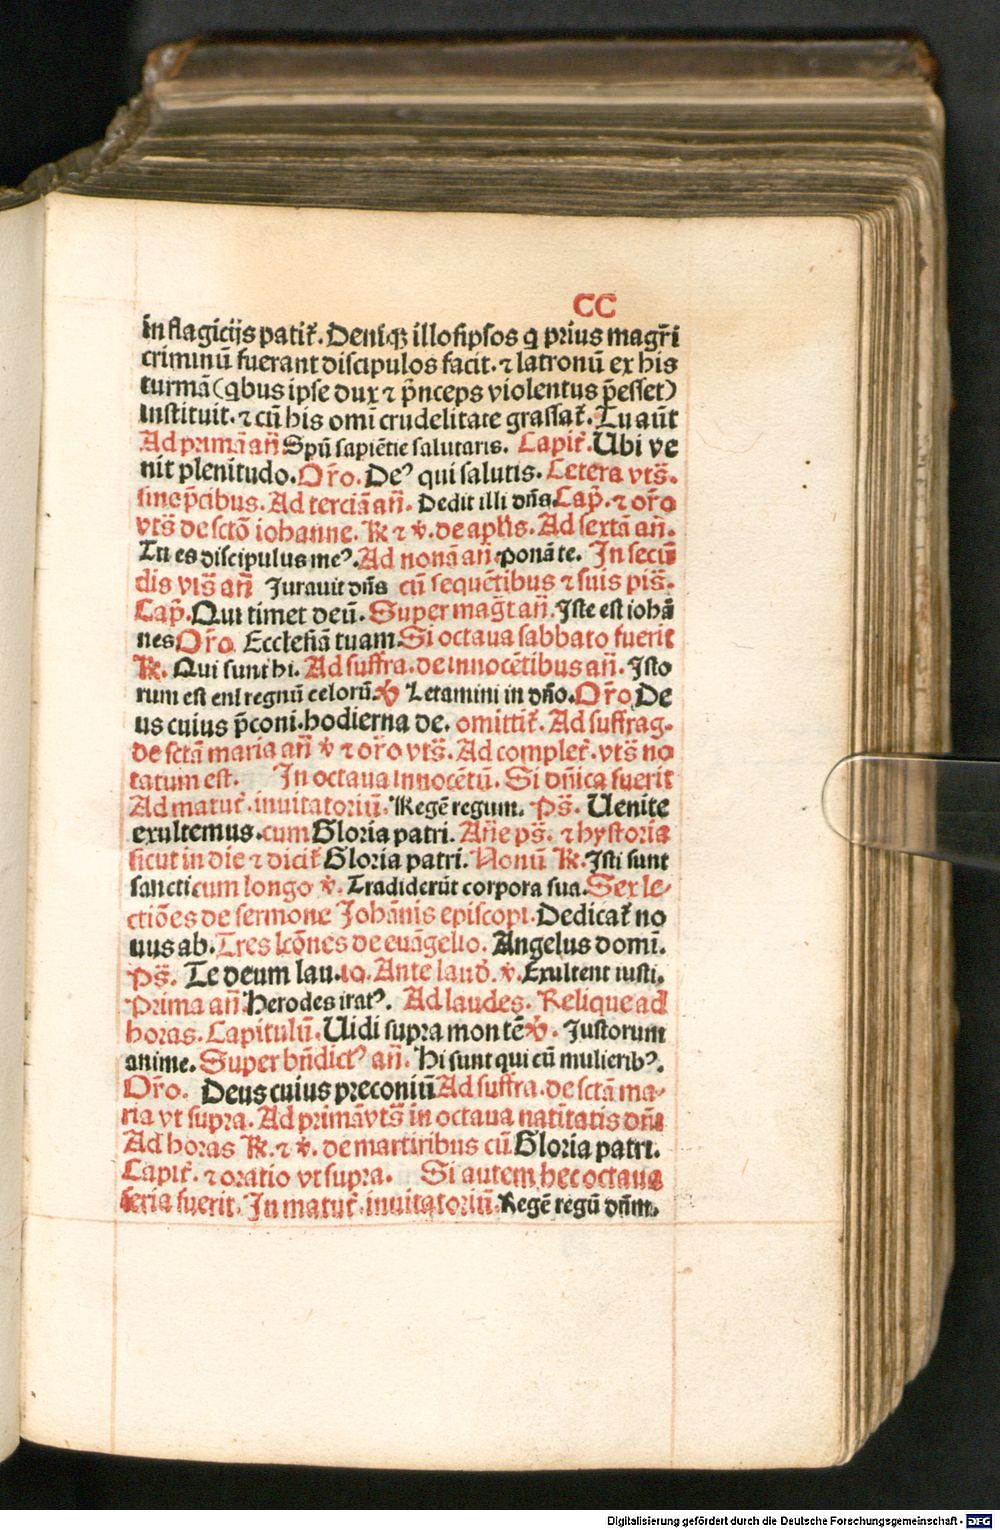 CC
in flagicijs patit᷑. Deniqꝫ illosipsos q̇ prius magr̄i
criminū fuerant discipulos facit. ⁊ latronū ex his
turmā (q̇bus ipse dux ⁊ p̄nceps violentus p̄esset)
instituit. ⁊ cū his omī crudelitate grassat᷑. Tu aūt
Ad primā an̄ Spū sapiētie salutaris. Capit᷑. Ubi ve
nit plenitudo. Or̄o. Deꝰ qui salutis. Cetera vts̄.
sine p̄cibus. Ad terciā an̄. Dedit illi dn̄s Cap̄. ⁊ or̄o
vts̄ de sctō iohanne. ℟ ⁊ ℣. de apl̄is. Ad sextā an̄.
Tu es discipulus meꝰ. Ad nonā an̄ Ponā te. In secū
dis vis̄ an̄ Jurauit dn̄s cū sequētibus ⁊ suis pis̄.
Cap̄. Qui timet deū. Super mag̅t an̄. Iste est iohā
nes Or̄o. Ecclesiā tuam. Si octaua sabbato fuerit
℟. Qui sunt hi. Ad suffra. de innocētibus an̄. Isto
rum est enī regnū celorū. ℣ Letamini in dn̄o. Or̄o. De
us cuius p̄coni. hodierna de. omittit᷑. Ad suffrag.
de sctā maria an̄ ℣ ⁊ or̄o vts̄. Ad complet᷑. vts̄ no
tatum est. In octaua Innocētū. Si dn̄ica fuerit
Ad matut᷑. inuitatoriū. Regē regum. Ps̄. Uenite
exultemus. cum Gloria patri. An̄e ps̄. ⁊ hystoria
sicut in die ⁊ dicit᷑ Gloria patri. Nonū ℟. Isti sunt
sancti cum longo ℣. Tradiderūt corpora sua. Sex le⸗
ctiōes de sermone Johānis episcopi. Dedicat᷑ no
uus ab. Tres lcōnes de euāgelio. Angelus domī.
Ps̄. Te deum lau. 10. Ante laud᷑. ℣. Exultent iusti.
Prima an̄. Herodes iratꝰ. Ad laudes. Relique ad
horas. Capitulū. Uidi supra montē ℣. Justorum
anime. Super bn̄dictꝰ an̄. Hi sunt qui cū mulieribꝰ.
Or̄o. Deus cuius preconiū Ad suffra. de sctā ma⸗
ria vt supra. Ad primā vts̄ in octaua natitatis dn̄i
Ad horas ℟. ⁊ ℣. de martiribus cū Gloria patri.
Capit᷑. ⁊ oratio vt supra. Si autem hec octaua
feria fuerit. In matut᷑. inuitatoriū. Regē regū dn̄m.
Digitalisierung gefördert durch die Deutsche Forschungsgemeinschaft - DFG